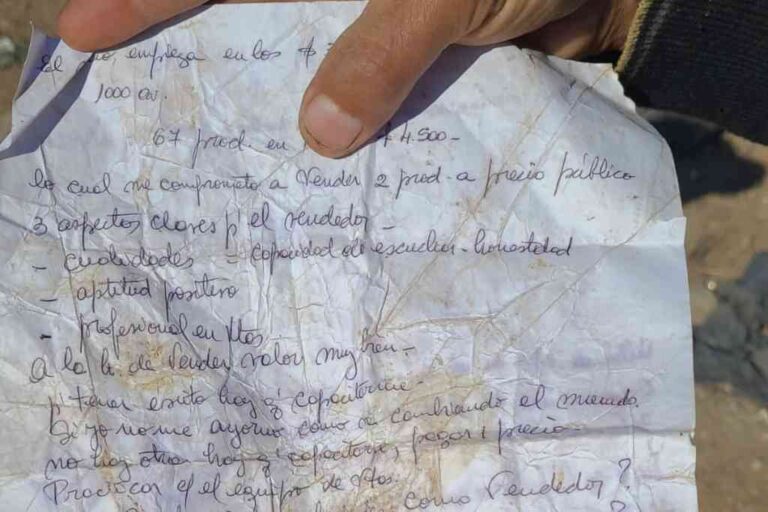 El empieza en los $
1000 av.
67 prod. en 4.500-
lo cual me comprometo a Vender 2 prod. a precio público
3 aspectos claves p' el vendedor -
- cualidades = capacidad de escuchar - honestidad
- aptitud positiva
- profesional en Vtas.
A la h. de Vender valor muy bien -
p' tener exito hay q' capacitarme -
Si yo no me ayorno como va cambiando el mundo.
no hay otra hay q' capacitarse, pagar 1 precio -
Provocar el equipo de Vtas.
como Vendedor ?